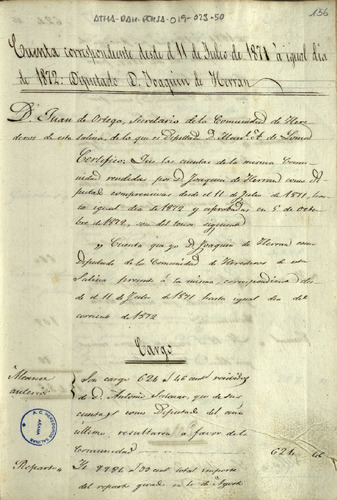 ATHA-DAH-FCHSA-019-023-50
136
Cuenta correspondiente desde el 11 de Julio de 1871 á igual dia
de 1872. Diputado D. Joaquin de Herran
Dn Juan de Ortega, Secretario de la Comunidad de Here-
deros de esta salina, de la que es Diputado D.
Certifico: Que las cuentas de la misma Comu-
nidad rendidas por D. Joaquin de Herran como Di-
putado comprensivas desde el 11 de Julio de 1871, has-
ta igual dia de 1872 y aprobadas en 5 de Octu-
bre de 1872, son del tenor siguiente
Cuenta que yo D. Joaquin de Herran como
Diputado de la Comunidad de Herederos de esta
Salina presento á la misma, correspondiente des-
de el 11 de Julio de 1871 hasta igual dia del
corriente de 1872
Cargo
Alcance
anterior
Son cargo 624 rs 46 cents recibidos
de D. Antonio Salazar, que de sus
cuentas como Diputado del año
último, resultaron á favor de la
Comunidad 624 46
Reparto
It 8886 rs 30 cents total importe
del reparto girado en 1º de Agosto
A.C. HEREDEROS SALINAS
AÑANA